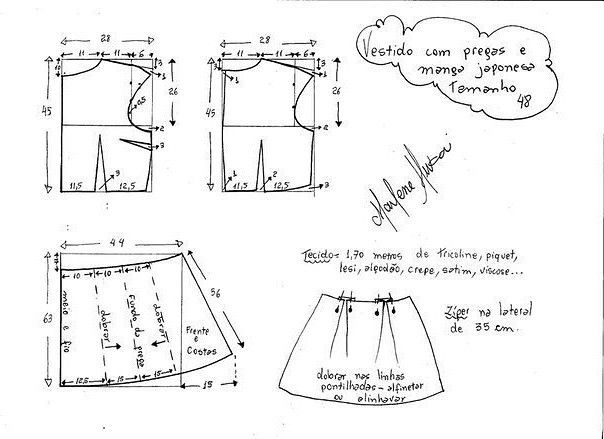 Vestido com pregas e
manga japonesa
Tamanho
48
28
11 11 6
3
1
10
45
26
0,5
2
3
3
11,5 12,5
28
11 11 6
3
1
1
45
26
2
1
2
3
11,5 12,5
Marlene Mukai
44
10
10 10 10
63
56
meio e fio
dobrar
fundo da prega
dobrar
Frente
e
Costas
12,5 15 15
15
Tecido= 1,70 metros de tricoline, piquet,
lesi, algodão, crepe, satim, viscose...
Zíper na lateral
de 35 cm.
dobrar nas linhas
pontilhadas - alfinetar
ou alinhavar